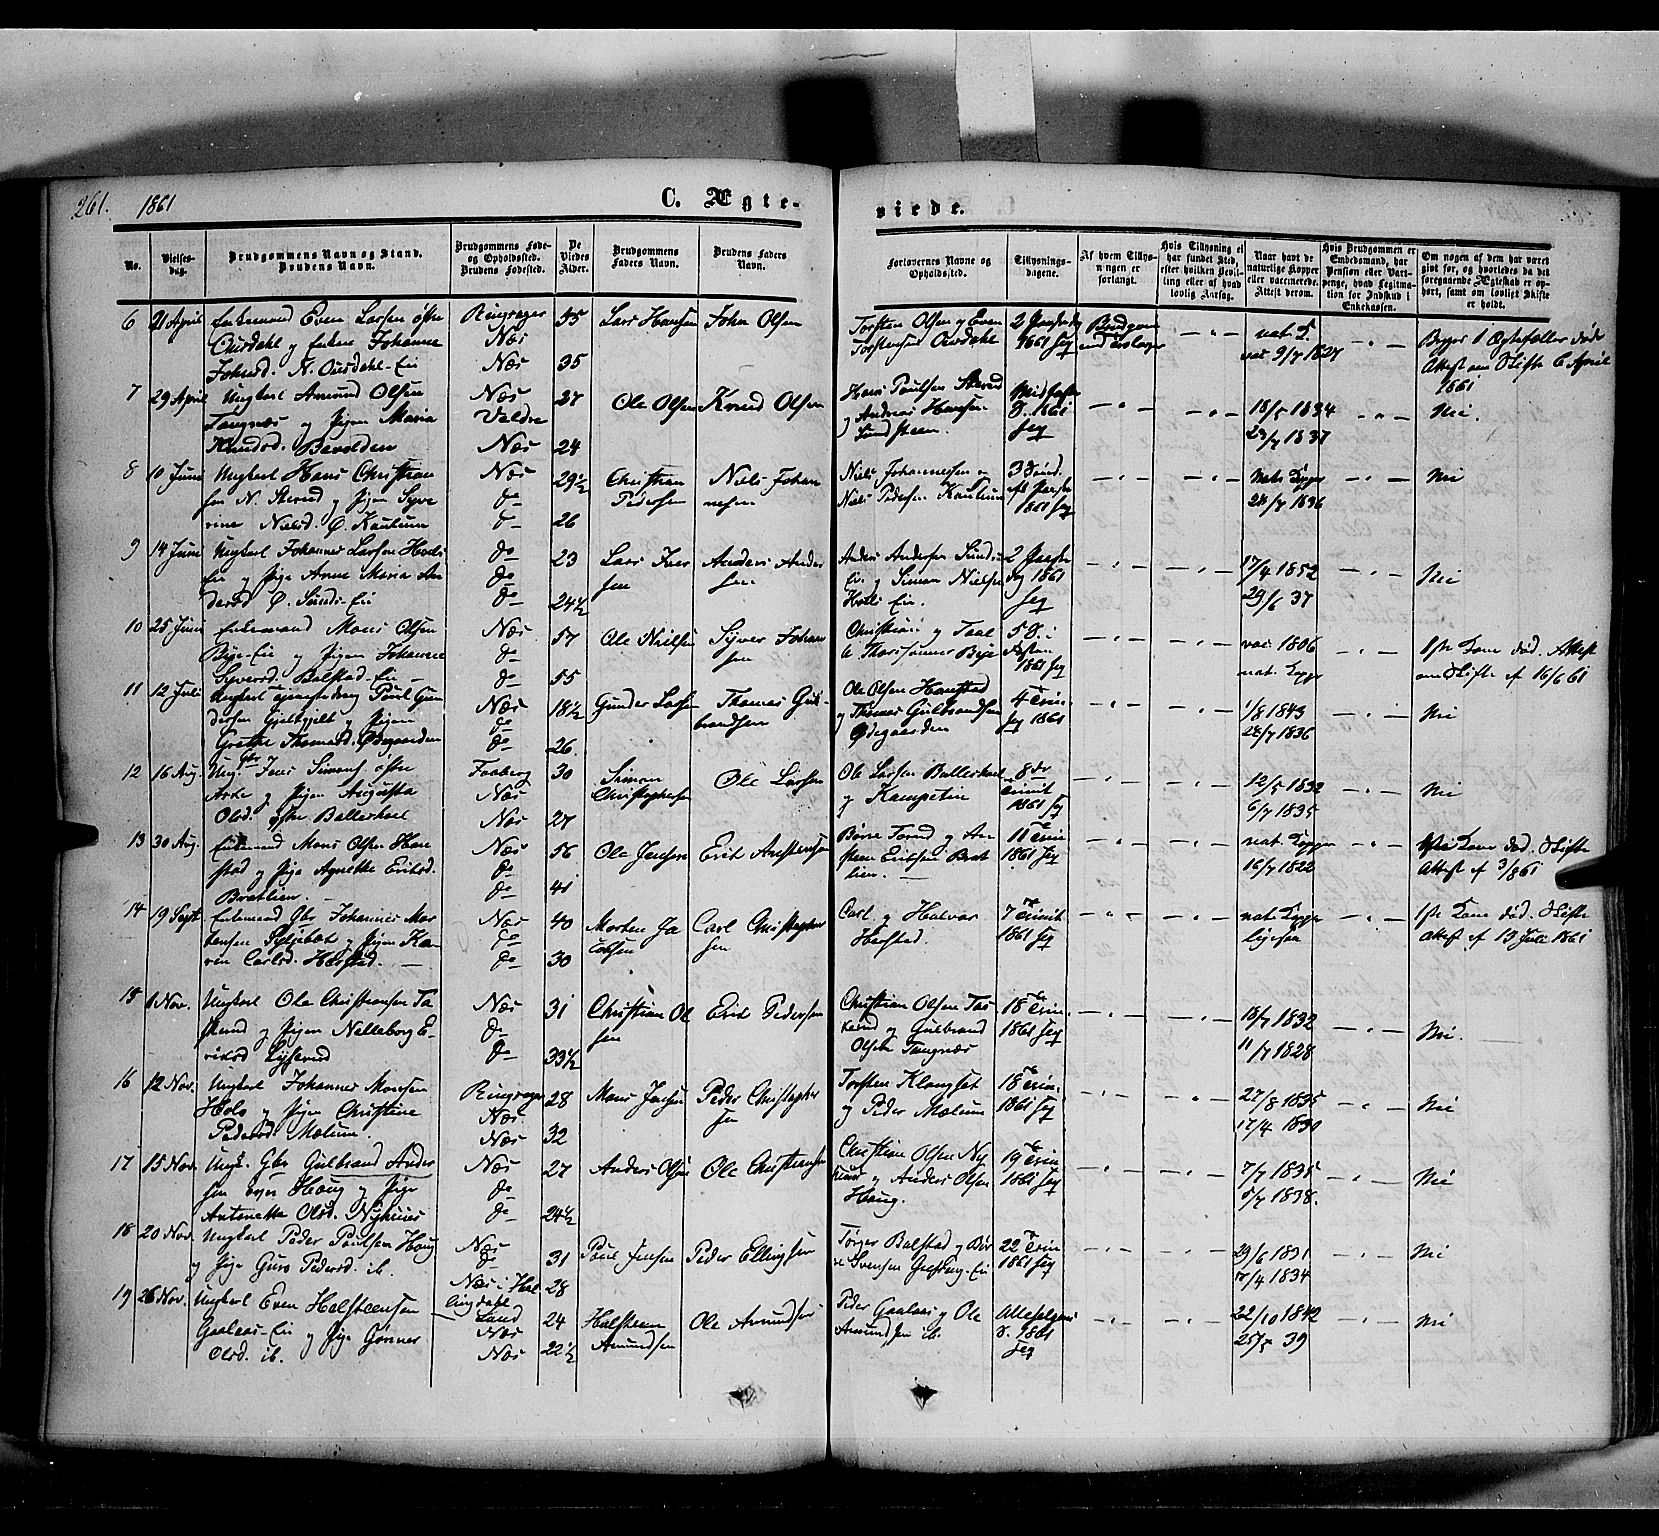 261. 1861 C. Ægte- viede.
No.
Vielses-
dag.
Brudgommens Navn og Stand.
Brudens Navn.
Brudgommens Føde-
og Opholdssted.
Brudens Fødested.
De
Viedes
Alder.
Brudgommens
Faders Navn.
Brudens Faders
Navn.
Forlovernes Navne og
Opholdssted.
Tillysnings-
dagene.
Af hvem Tillys-
ningen er
forlangt.
Hvis Tillysning ei
har fundet Sted,
efter hvilken Bevil-
ling eller af hvad
lovlig Aarsag.
Naar havt de
naturlige Kopper
eller vaccinerede.
Attest derom.
Hvis Brudgommen er
Embedsmand, har
Pension eller Vart-
penge, hvad Legitima-
tion for Indskud i
Enkekassen.
Om nogen af dem har været
gift før, og hvorledes da det
foregaaende Ægteskab er op-
hørt, samt om lovligt Skifte
er holdt.
6 21 April Enkemand Even Larsen østre
Ousdahl og Enken Johanne
Johnsd. N. Ousdahl-Eie
Ringsager
Næs
Næs
45
35
Lars Hansen John Olsen
Torsten Olsen og Even
Torstensen Ousdahl
1861 Jeg
Brudgom
nat. K.
vac 9/7 1827
Begges 1 Ægtefæller døde
Attest om Skifte 6 April
1861
7 29 April Ungkarl Amund Olsen
Tangnæs og Pigen Maria
Knudsd. Bevolden
Næs
Valdre
Næs
27
24
Ole Olsen Knud Olsen
Hans Poulsen Sterud
og Andreas Hansen
Sundsteen.
1861
Jeg
18/5 1834
23/7 1837
Nei.
8 10 Juni Ungkarl Hans Christian
sen N. Sterud og Pigen Syve
rine Nielsd. Ø. Kaulum
Næs
do
do
29 1/2
26
Christian
Pedersen
Niels Johan
nesen
Niels Johannessen og
Niels Pedersen Kaulum
3 Sønd.
1861 Jeg
nat. Kopper
24/7 1836
Nei
9 14 Juni Ungkarl Johannes Larsen Hvels
Eie og Pige Anne Maria An
dersd Ø. Sunds-Eie
do
do
do
23
24 1/2
Lars Iver
sen
Anders Ander
sen
Anders Andersen Sunds
Eie og Simon Nielsen
Hvels Eie.
2 Paaske
dag 1861
Jeg
17/4 1852
29/6 37
Nei
10 25 Juni Enkemand Mons Olsen
Bye-Eie og Pigen Johanne
Syversd. Balstad-Eie
Næs
do
do
57
55
Ole Nielsen Syver Johan
sen
Christian og Paal
Bye
5 S. i
Fasten
1861 Jeg
vac 1806
nat. Kopper
1ste Kone død. Attest
om Skifte af 16/6 61
11 12 Juli Ungkarl Poul Gun
dersen Gjeltgjelt og Pigen
Grethe Thomasd. Ødegaarden
Næs
do
do
18 1/2
26.
Gunder Larsen Thomas Gul-
brandsen
Ole Olsen Hanstad
og Thomas Gulbrandsen
Ødegaarden
4 Trin.
Jeg 1861
1/8 1843
28/7 1836
Nei
12 16 Aug. Ungk. Gbr Jens Simons. østre
Arke og Pigen Augusta
Olsd. østre Ballerhoel
Faaberg
Næs
Næs
30
27
Simon
Christophersen
Ole Larsen
Ole Larsen Ballerhoel
og Kampetin
8de
Trinit
1861 Jeg
12/5 1832
6/7 1835
Nei
13 30 Aug. Enkemand Mons Olsen Han
stad og Pige Agnethe Eriksd.
Bratlien.
Næs
do
do
56
41
Ole Jensen Erik Amstensen
Børre Torud og An
sten Eriksen Brat
lien.
11te Trin
1861 Jeg
nat. Kopper
16/7 1822
1ste Kone død. Skifte
Attest af 3/8 61
14 19 Sept Enkemand Gbr Johannes Mor
tensen Syljebæk og Pigen Ka-
ren Carlsd. Herstad.
Næs
do
do
40
30
Morten Ja
cobsen
Carl Christopher
sen
Carl og Halvor
Herstad.
7de Trinit
1861 Jeg
nat. Kopper
ligesaa
1ste Kone død. Skifte
Attest af 13 Juli 1861
15 1 Nov. Ungkarl Ole Christiansen Ta
Pigen Nelleborg E-
riksd Lyserud
Næs
do
do
31
33 1/2
Christian Ol
sen
Erik Pedersen
Christian Olsen
og Gulbrand
Olsen Tangnæs
18te Trin.
1861 Jeg
18/7 1832
11/7 1828
Nei.
16 12 Nov. Ungkarl Johannes Monsen
Holo og Pigen Christine
Pedersd. Mælum.
Ringsager
Næs
Næs
28
32
Mons Jensen Peder Christopher
sen
Torsten Klangset
og Peder Mælum
18te Trin.
1861 Jeg
27/8 1835
17/4 1830
Nei
17 15 Nov. Ungk. Gbr Gulbrand Ander
sen Haug og Pige
Antonette Olsd. Nykuus
Næs
do
do
27
24 1/2
Anders Olsen Ole Christiansen
Christian Olsen Ny
kuus og Anders Olsen
Haug.
19te Trin
1861 Jeg
7/7 1835
5/7 1838.
Nei
18 20 Nov. Ungkarl Peder Poulsen Haug
og Pige Guro Pedersd. ib.
Næs
do
Næs i Hal
lingdahl
31
28
Poul Jensen Peder Ellingsen
Tørger Balstad og Bør
re Svensen
22 Trin
1861 Jeg
29/6 1831
17/4 1834
Nei
19 26 Nov. Ungkarl Even Halsteensen
Gaalaas-Eie og Pige Gunner
Olsd. ib.
Land
Næs
Næs
24
22 1/2
Halsteen
Amundsen
Ole Amundsen
Peder Gaalaas og Ole
Amundsen ib.
Allehelgens
D. 1861
Jeg
22/10 1842
25/5 39
Nei